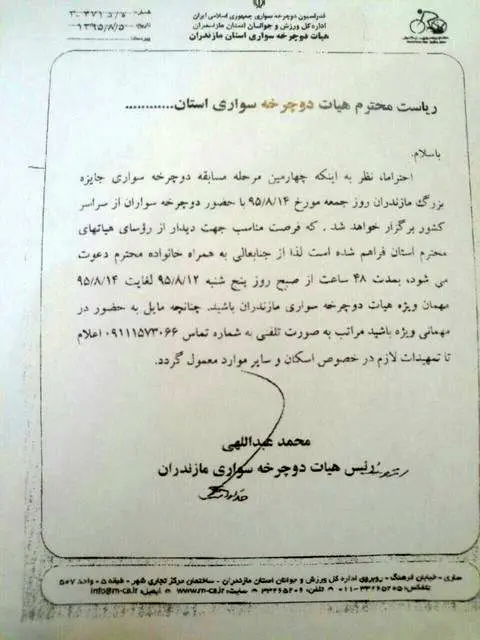 فدراسیون دوچرخه سواری جمهوری اسلامی ایران
اداره کل ورزش و جوانان استان مازندران
هیات دوچرخه سواری استان مازندران
شماره:
تاریخ: ۱۳۹۵/۸/۵
پیوست:
ریاست محترم هیات دوچرخه سواری استان............
باسلام.
احتراما، نظر به اینکه چهارمین مرحله مسابقه دوچرخه سواری جایزه
بزرگ مازندران روز جمعه مورخ ۹۵/۸/۱۴ با حضور دوچرخه سواران از سراسر
کشور برگزار خواهد شد . که فرصت مناسب جهت دیدار از رؤسای هیاتهای
محترم استان فراهم شده است لذا از جنابعالی به همراه خانواده محترم دعوت
می شود، بمدت ۴۸ ساعت از صبح روز پنج شنبه ۹۵/۸/۱۲ لغایت ۹۵/۸/۱۴
مهمان ویژه هیات دوچرخه سواری مازندران باشید. چنانچه مایل به حضور در
مهمانی ویژه باشید مراتب به صورت تلفنی به شماره تماس ۰۹۱۱۱۵۷۳۰۶۶ اعلام
تا تمهیدات لازم در خصوص اسکان و سایر موارد معمول گردد.
محمد عبداللهی
رئیس هیات دوچرخه سواری مازندران
ساری - خیابان فرهنگ - روبروی اداره کل ورزش و جوانان استان مازندران - ساختمان مرکز تجاری شهر - طبقه ۵ - واحد ۵۰۷
تلفکس: ۳۳۲۶۵۲۰۵-۰۱۱ تلفن: ۳۳۲۶۵۲۰۶ سایت: www.m-ca.ir ایمیل: info@m-ca.ir